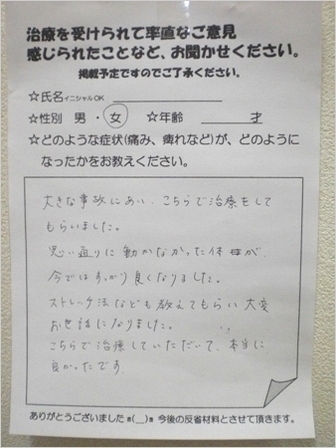 治療を受けられて率直なご意見
感じられたことなど、お聞かせください。
掲載予定ですのでご了承ください。
☆氏名イニシャルOK
☆性別 男・女 ☆年齢 才
☆どのような症状(痛み、痺れなど)が、どのように
なったかをお教えください。
大きな事故にあい、こちらで治療をして
もらいました。
思い通りに動かなかった体も
今ではすっかり良くなりました。
ストレッチ法なども教えてもらい大変
お世話になりました。
こちらで治療していただいて、本当に
良かったです
ありがとうございました m(__)m 今後の反省材料とさせて頂きます。